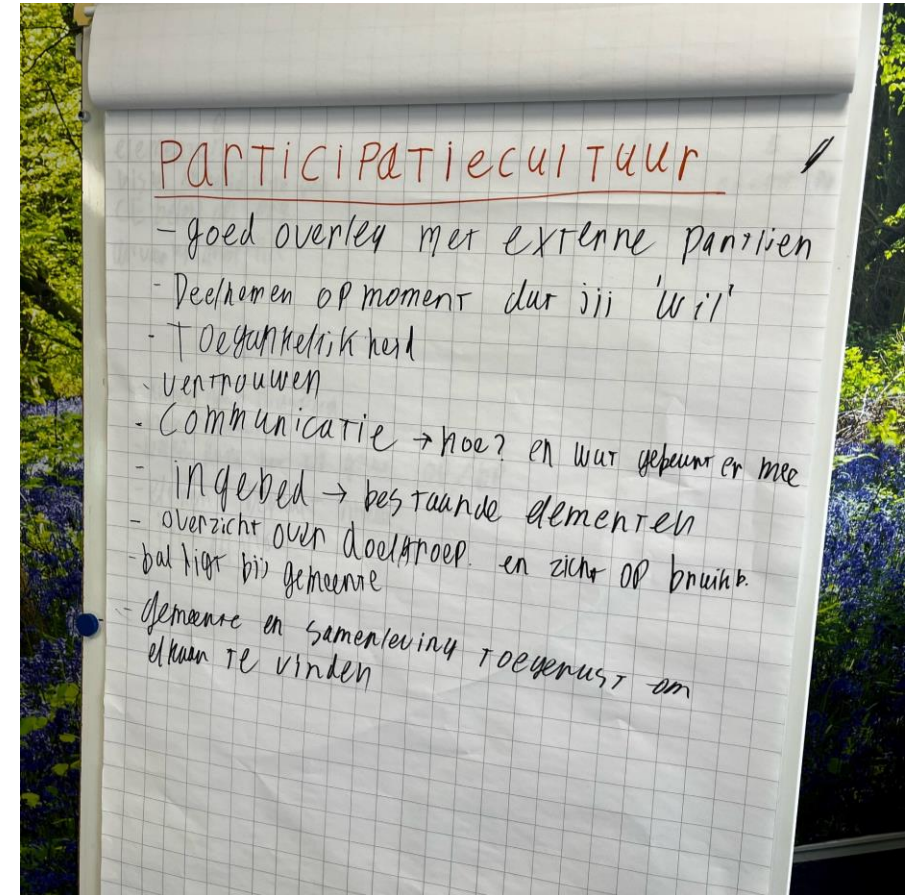 Participatiecultuur
- goed overleg met externe partijen
- Deelnemen op moment dat jij 'wil'
- Toegankelijkheid
- vertrouwen
- Communicatie → hoe? en wat gebeurt er mee
- ingebed → bestaande elementen
- overzicht over doelgroep. en zicht op bruikb.
- bal ligt bij gemeente
- gemeente en samenleving toegerust om
elkaar te vinden